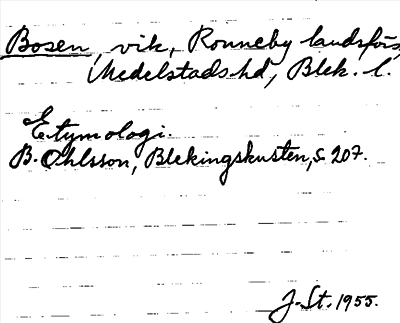 Bosen, vik, Ronneby landsförs,
Medelstads hd, Blek. l.
Etymologi.
B. Ohlsson, Blekingskusten, s. 207.
J. St. 1955.